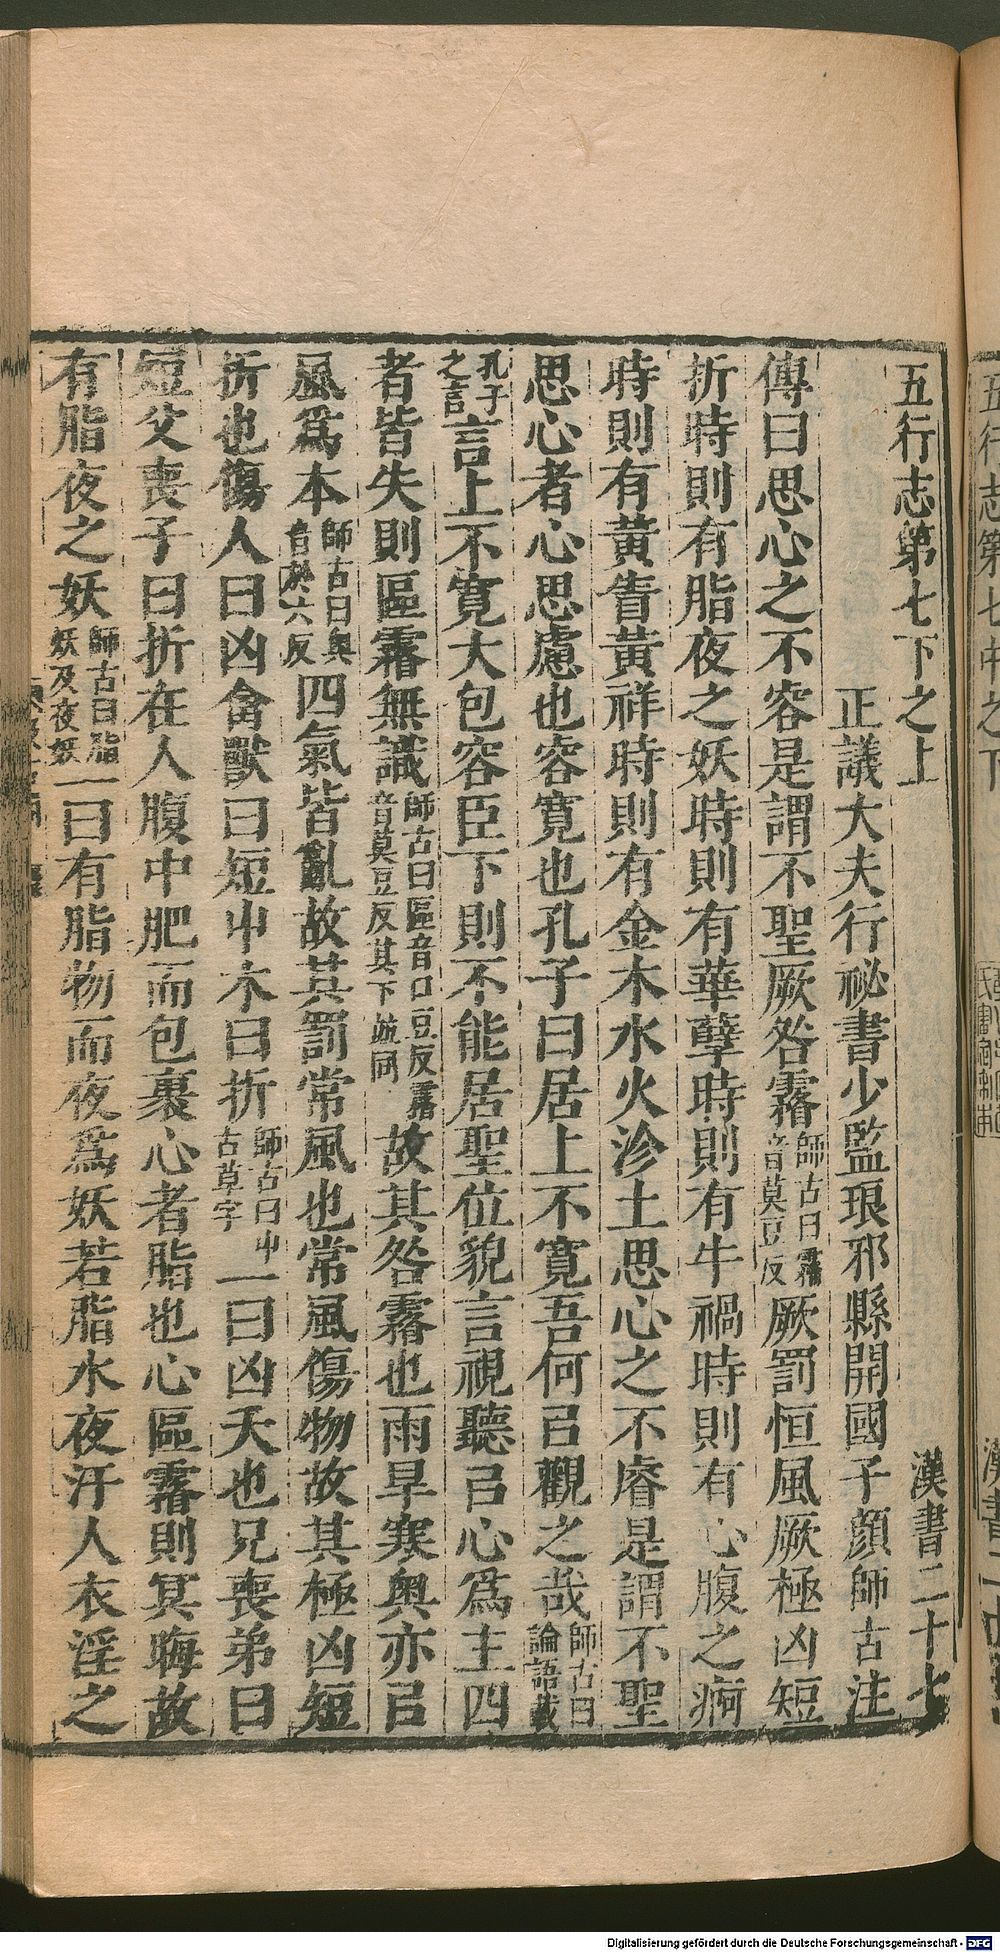 五行志第七下之上　漢書二十七
正議大夫行祕書少監琅邪縣開國子顏師古注
傳曰思心之不容是謂不聖厥咎霿師古曰霿音莫豆反厥罰恒風厥極凶短
折時則有脂夜之妖時則有華孽時則有牛禍時則有心腹之痾
時則有黃眚黃祥時則有金木水火沴土思心之不睿是謂不聖
思心者心思慮也容寬也孔子曰居上不寬吾何㠯觀之哉師古曰論語載
孔子之言言上不寬大包容臣下則不能居聖位貌言視聽㠯心爲主四
者皆失則區霿無識師古曰區音口豆反霿音莫豆反其下竝同故其咎霿也雨旱寒奥亦㠯
風爲本師古曰奥音於六反四氣皆亂故其罰常風也常風傷物故其極凶短
折也傷人曰凶禽獸曰短屮木曰折師古曰屮古草字一曰凶夭也兄喪弟曰
短父喪子曰折在人腹中肥而包裹心者脂也心區霿則冥晦故
有脂夜之妖師古曰脂妖及夜妖一曰有脂物而夜爲妖若脂水夜汙人衣淫之
五行志第七中之下
漢書二十
Digitalisierung gefördert durch die Deutsche Forschungsgemeinschaft - DFG